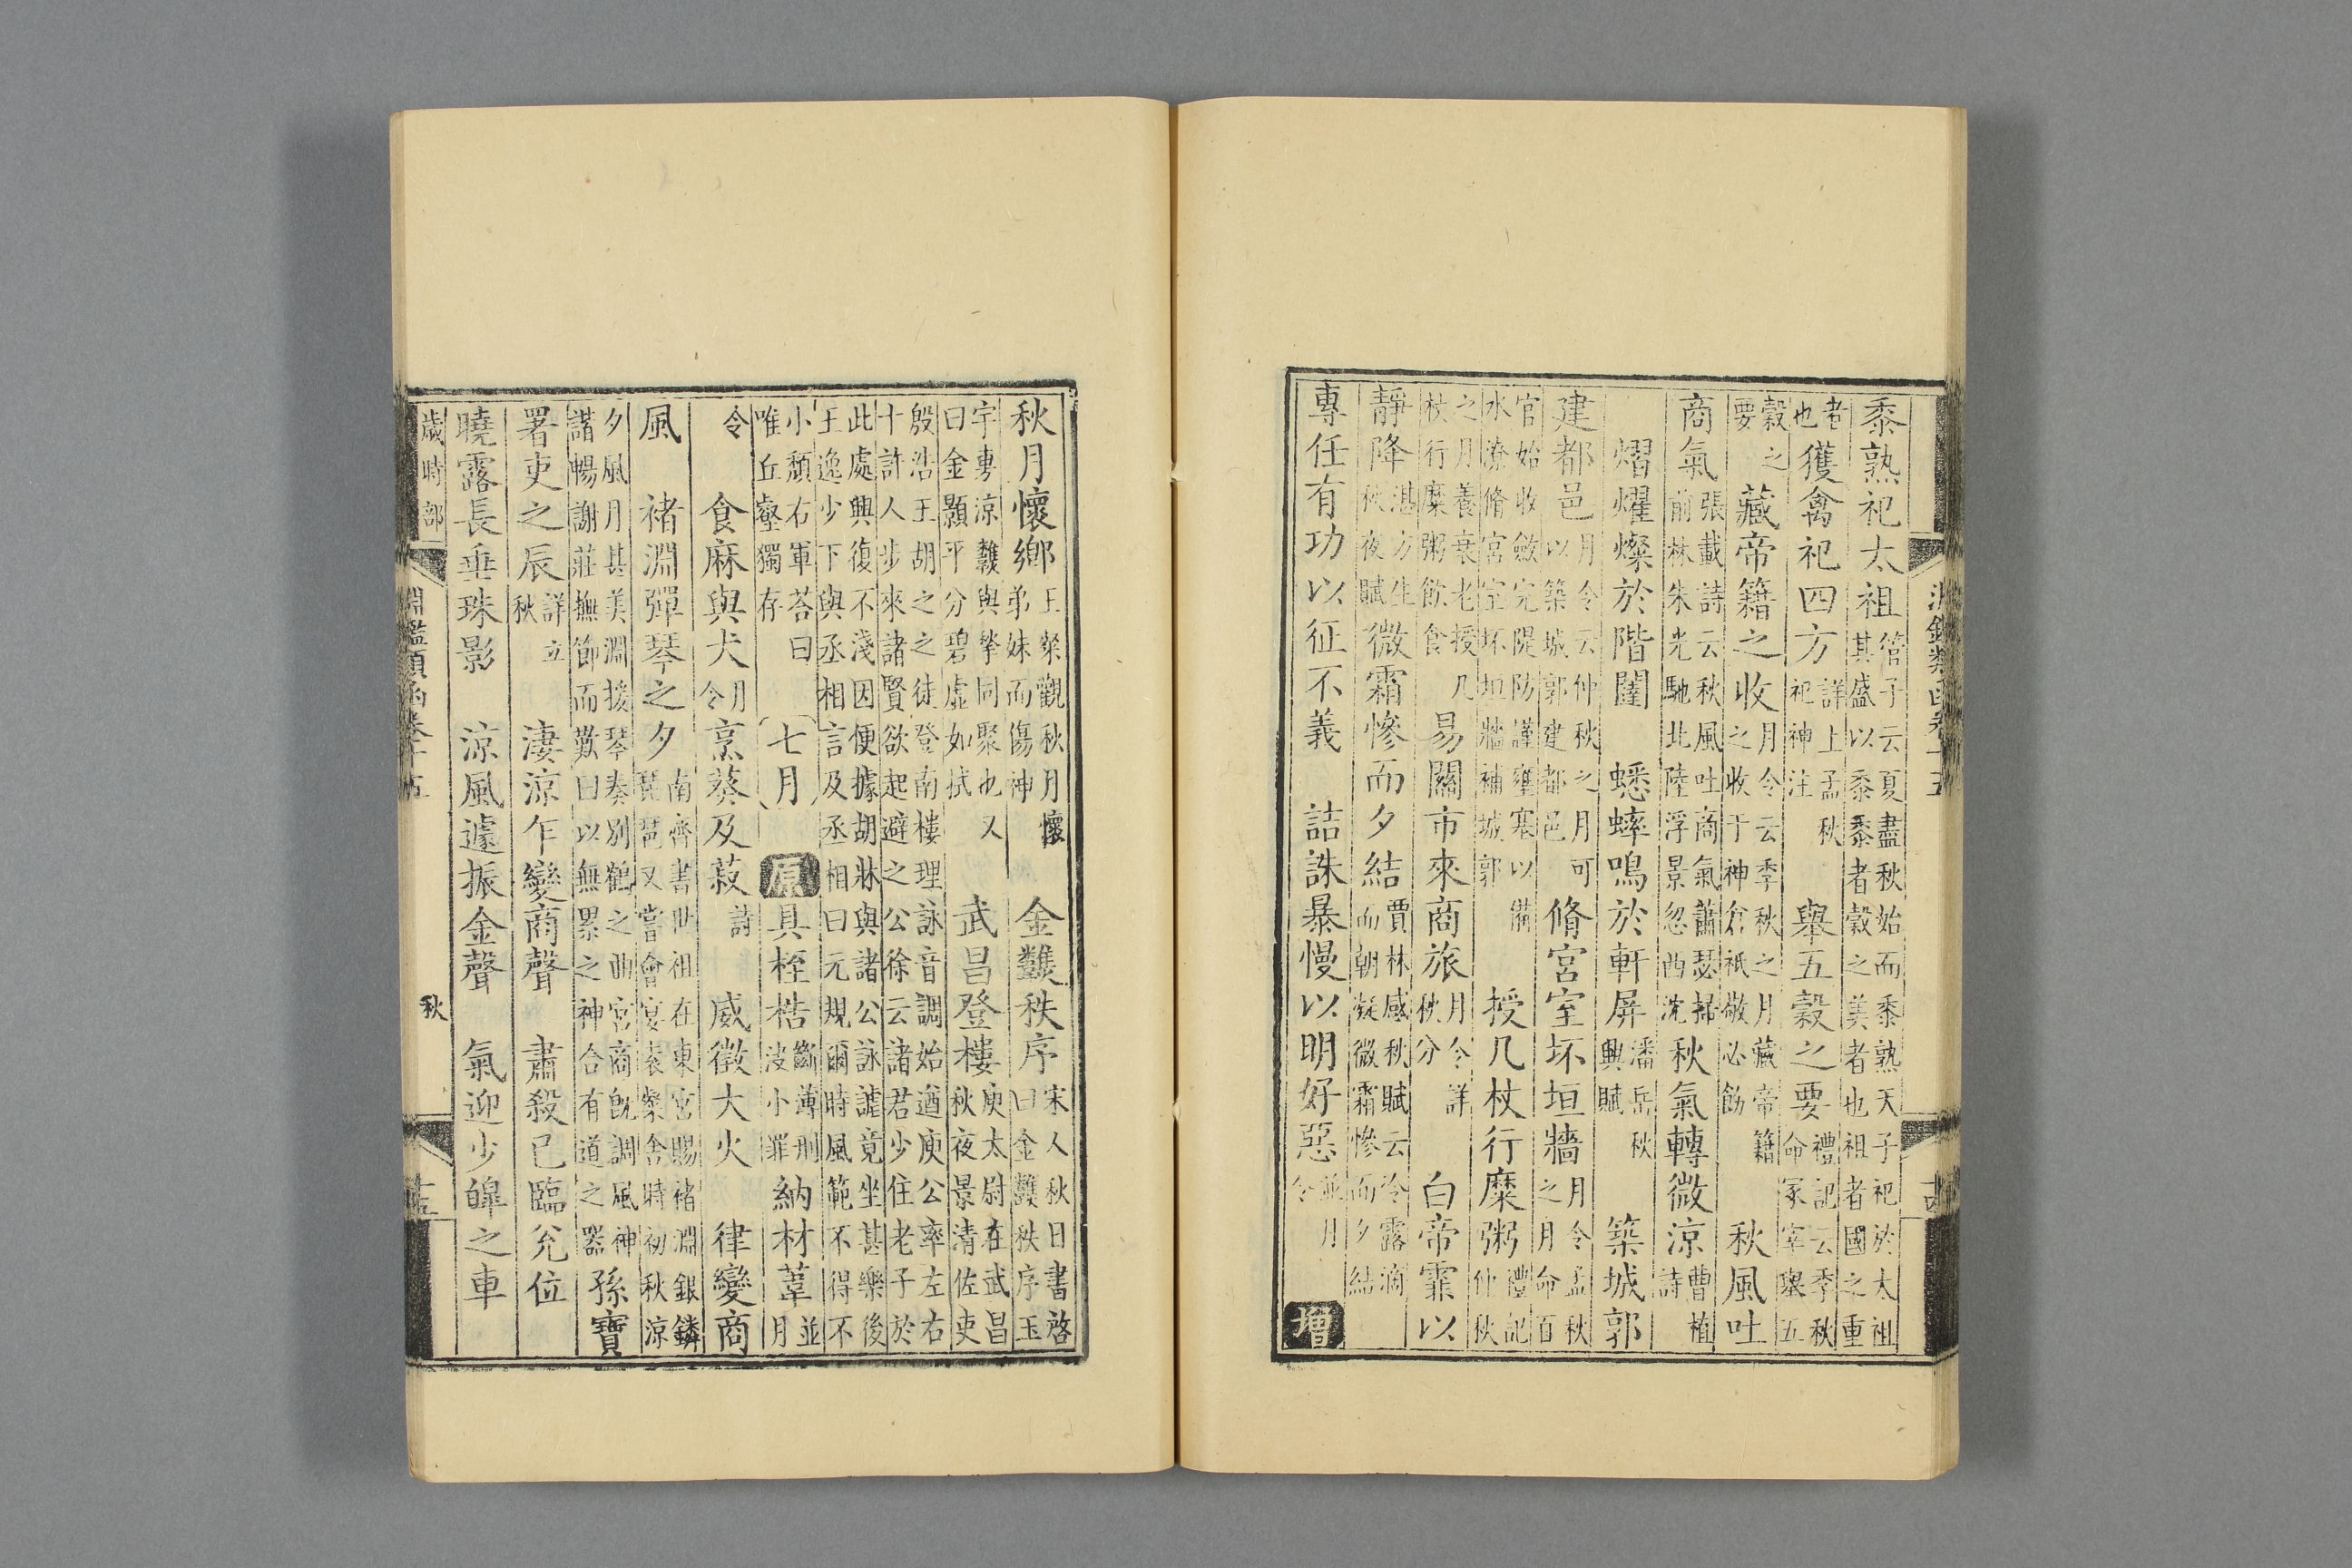 淵鑑類函卷十五
黍熟祀太祖管子云夏盡秋始而黍熟天子祀於太祖其盛以黍黍者穀之美者也祖者國之重
者也獲禽祀四方詳上孟秋祀神注 舉五穀之要禮記云季秋命冢宰舉五
穀之要 藏帝籍之收月令云季秋之月藏帝籍之收于神倉祇敬必飭 秋風吐
商氣張載詩云秋風吐商氣蕭瑟掃前林朱光馳北陸浮景忽西沈 秋氣轉微涼曹植詩
熠燿燦於階闥 蟋蟀鳴於軒屏潘岳秋興賦 築城郭
建都邑月令云仲秋之月可以築城郭建都邑 脩宮室坏垣牆月令孟秋之月命百
官始收斂完隄防謹壅塞以備水潦脩宮室坏垣牆補城郭 授几杖行糜粥禮記仲秋
之月養衰老授几杖行糜粥飲食 易關市來商旅月令詳秋分 白帝霏以
靜降湛方生秋夜賦 微霜慘而夕結賈林感秋賦云冷露滴而朝凝微霜慘而夕結
專任有功以征不義 詰誅暴慢以明好惡並月令 增
秋月懷鄉王粲觀秋月懷弟妹而傷神 金秩序宋人秋日書啓曰金秩序玉
宇專涼與揫同聚也又曰金顥平分碧虛如拭 武昌登樓庾太尉在武昌秋夜景清佐吏
殷浩王胡之之徒登南樓理詠音調始遒庾公率左右十許人步來諸賢欲起避之公徐云諸君少住老子於
此處興復不淺因便據胡牀與諸公詠謔竟坐甚樂後王逸少下與丞相言及丞相曰元規爾時風範不得不
小頹右軍荅曰唯丘壑獨存 七月 原具桎梏斷薄刑決小罪 納材葦並月
令 食麻與犬月令 烹葵及菽詩 威徵大火 律變商
風 褚淵彈琴之夕南齊書世祖在東宮賜褚淵銀鏻琵琶又嘗會宴袁粲舍時初秋涼
夕風月甚美淵援琴奏別鶴之曲宮商旣調風神諧暢謝莊撫節而歎曰以無累之神合有道之器 孫寶
署吏之辰詳立秋 淒涼乍變商聲 肅殺已臨兊位
曉露長垂珠影 涼風遽振金聲 氣迎少皥之車
歲時部 淵鑑類函卷十五 秋 十五